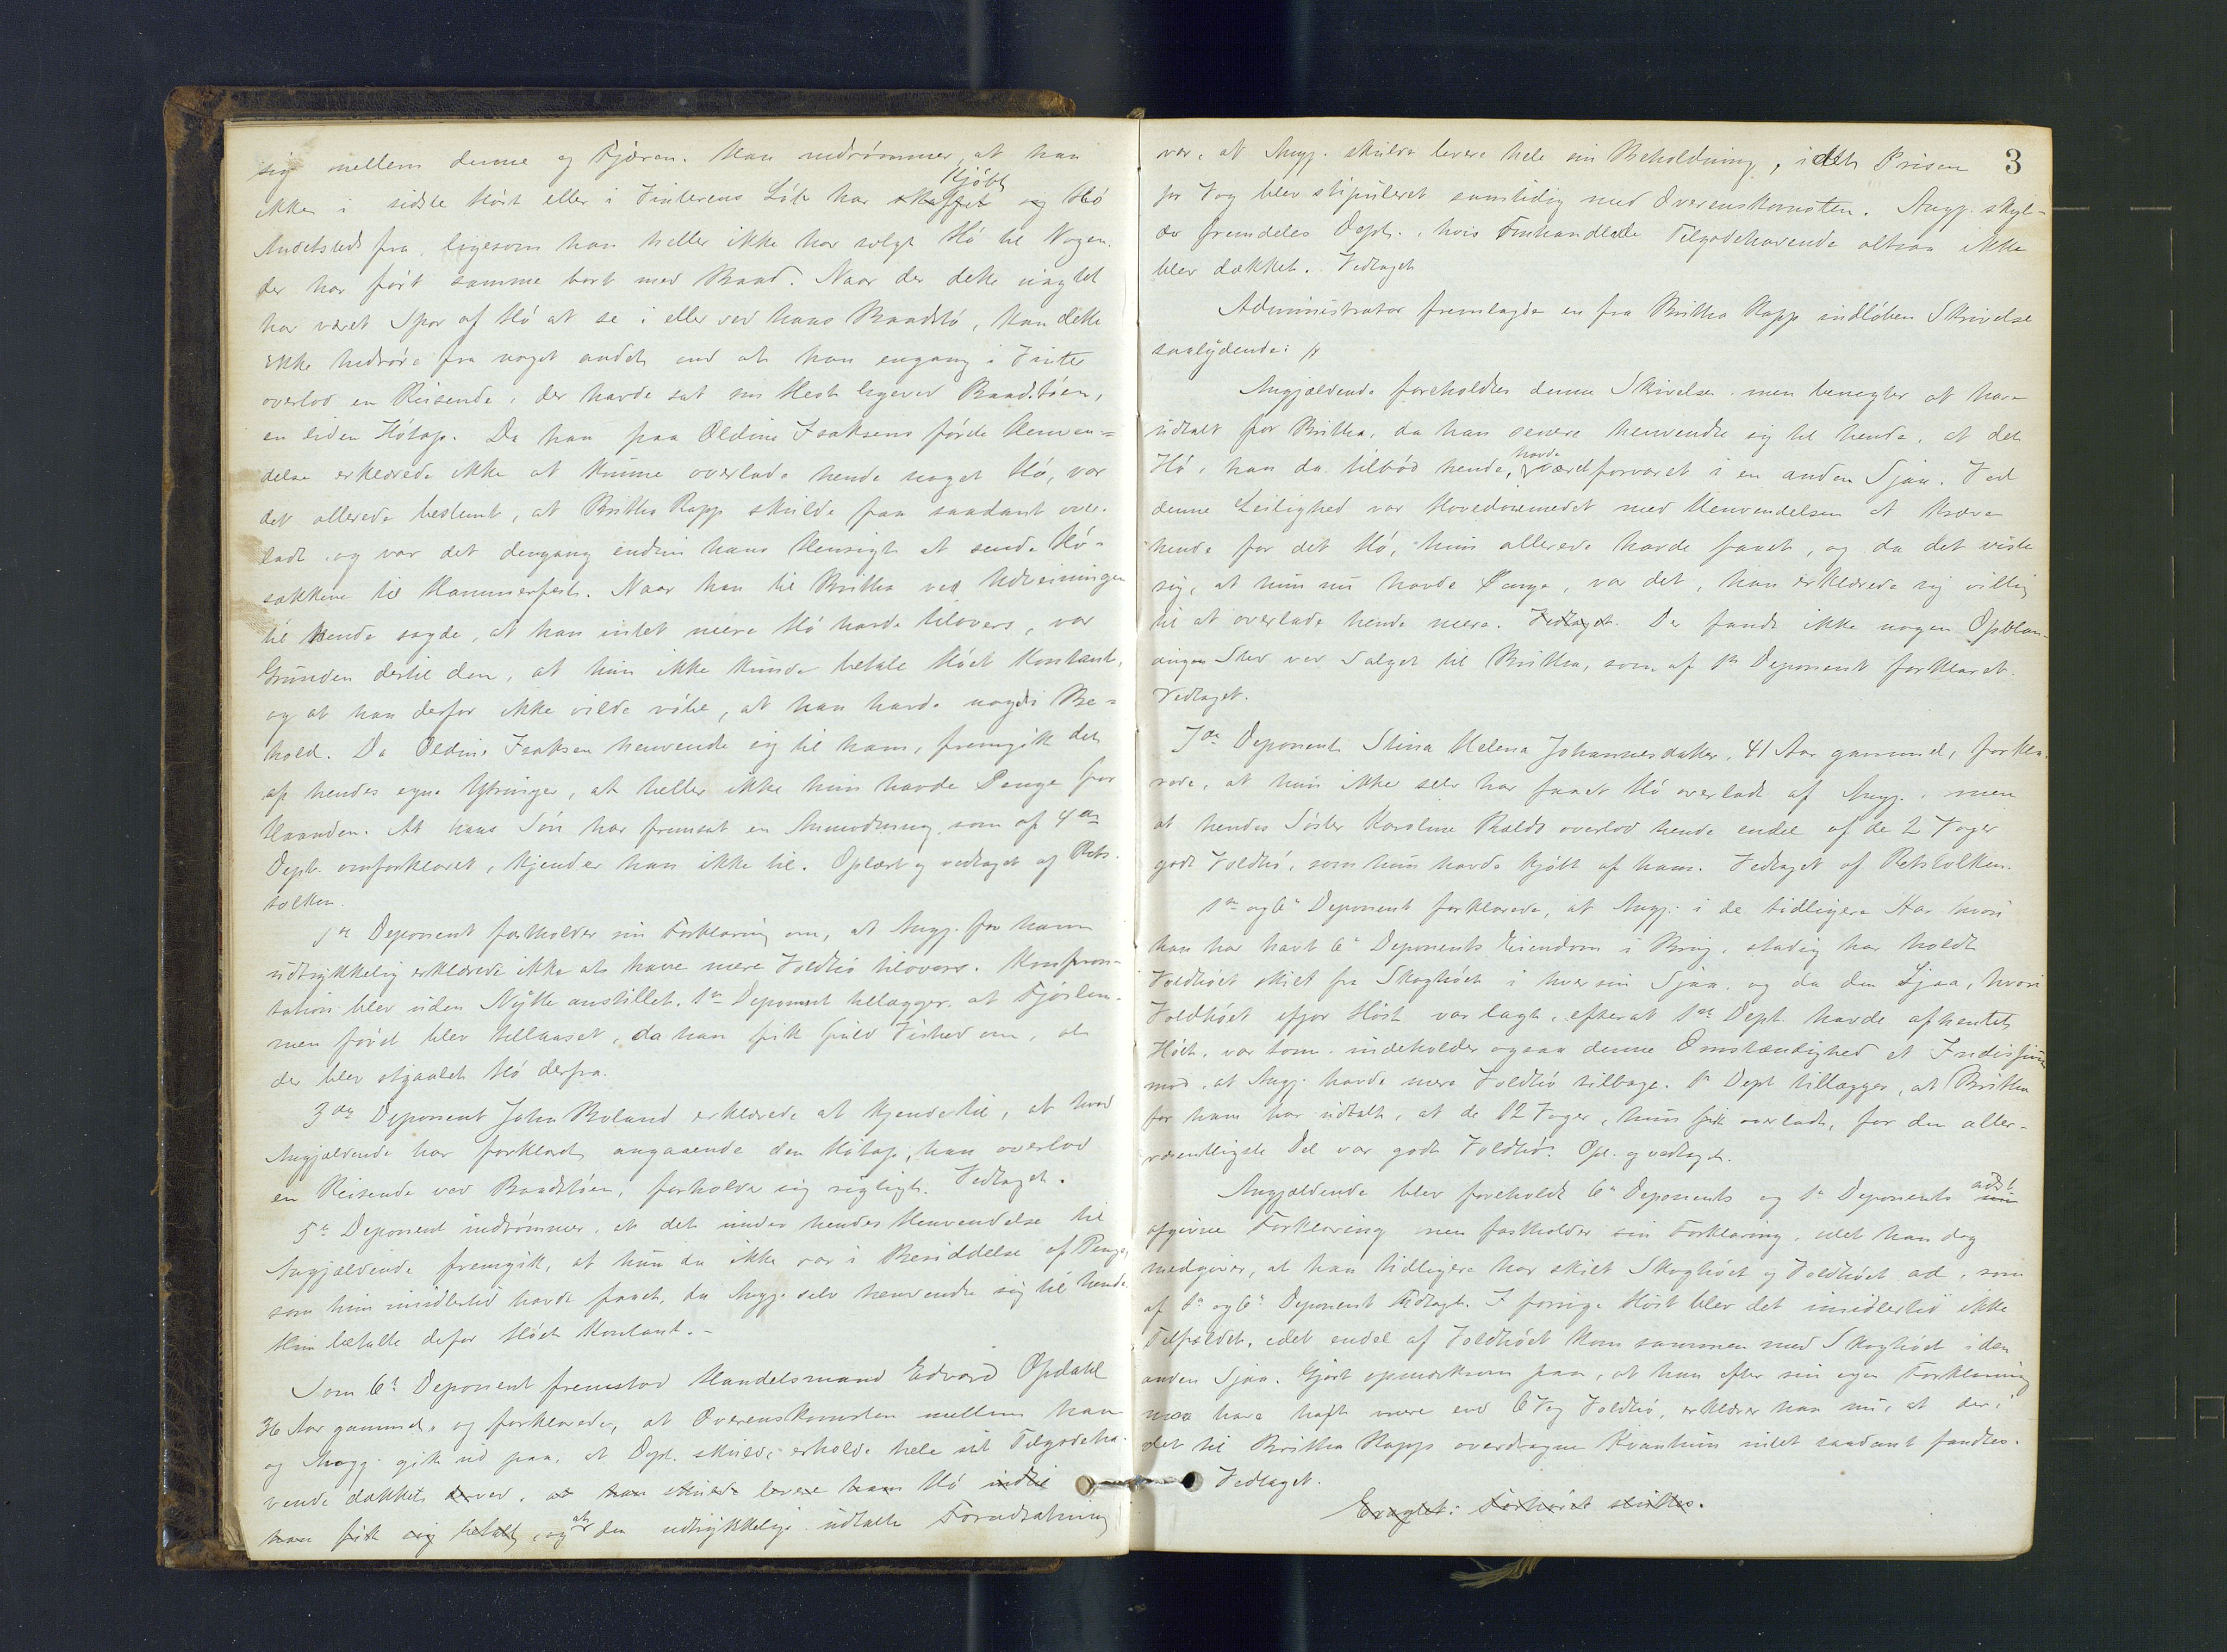 sig mellem denne og Fjæren. Han indrømmer, at han
ikke i sidste Høst eller i Vinterens Løb har skaffet Kjøbt sig Hø
Andetsteds fra, ligesom han heller ikke har solgt Hø til Nogen,
der har ført samme bort med Baad. Naar der dette uagtet
har været Spor af Hø at se i eller ved hans Baadstø, kan dette
ikke hidrøre fra noget andet end at han engang i Vinter
overlod en Reisende, der havde sat sin Hest ligeved Baadstøen,
en liden Høtap. Da han paa Oldine Isaksens første Henven-
delse erklærede ikke at kunne overlade hende noget Hø, var
det allerede bestemt, at Britha Rapp skulde faa saadant over-
ladt, og var det dengang endnu hans Hensigt at sende Hø-
sækkene til Hammerfest. Naar han til Britha ved Udveiningen
til hende sagde, at han intet mere Hø havde tilovers, var
Grunden dertil den, at hun ikke kunde betale Høet kontant,
og at han derfor ikke vilde røbe, at han havde noget i Be-
hold. Da Oldine Isaksen henvendte sig til ham, fremgik det
af hendes egne Ytringer, at heller ikke hun havde Penge for
Haanden. At hans Søn har fremsat en Anmodning som af 4de
Dept. omforklaret, kjender han ikke til. Oplæst og vedtaget af Rets-
tolken.
1ste Deponent fastholder sin Forklaring om, at Angj. for ham
udtrykkelig erklærede ikke at have mere Voldhø tilovers. Konfron-
tation blev uden Nytte anstillet. 1ste Deponent tillægger, at Fjøslem-
men først blev tillaaset, da han fik fuld Vished om, at
der blev stjaalet Hø derfra.
3die Deponent John Boland erklærede at kjende til, at hvad
Angjældende har forklaret angaaende den Høtap, han overlod
en Reisende ved Baadstøen, forholder sig rigtigt. Vedtaget.
5te Deponent indrømmer, at det under hendes Henvendelse til
Angjældende fremgik, at hun da ikke var i Besiddelse af Penge,
som hun imidlertid havde faaet, da Angj. selv henvendte sig til hende.
Hun betalte derfor Høet kontant.-
Som 6te Deponent fremstod Handelsmand Edvard Opdahl
36 Aar gammel, og forklarede, at Overenskomsten mellem ham
og Angj. gik ud paa, at Dept. skulde erholde hele sit Tilgodeha-
vende dækket derved, at han skulde levere ham Hø indtil
han fik sig betalt, og at den udtrykkelig udtalte Forudsætning
3
var, at Angj. skulde levere hele sin Beholdning, idet Prisen
pr Vog blev stipuleret samtidig med Overenskomsten. Angj. skyl-
der fremdeles Dept., hvis Omhandlede Tilgodehavende altsaa ikke
blev dækket. Vedtaget
Administrator fremlagde en fra Britha Rapp indløben Skrivelse
saalydende:
Angjældende foreholdtes denne Skrivelse, men benegter at have
udtalt for Britha, da han senere henvendte sig til hende, at det
Hø, han da tilbød hende, havde været forvaret i en anden Sjaa. Ved
denne Leilighed var Hovedøiemedet med Henvendelsen at kræve
hende for det Hø, hun allerede havde faaet, og da det viste
sig, at hun nu havde Penge, var det, han erklærede sig villig
til at overlade hende mere. Vedtaget. Der fandt ikke nogen Opblan-
dingen Sted ved Salget til Britha, som af 1ste Deponent forklaret.
Vedtaget.
7de Deponent Stina Helena Johannesdatter, 41 Aar gammel, forkla-
rede, at hun ikke selv har faaet Hø overladt af Angj., men
at hendes Søster Karoline Balds overlod hende endel af de 2 Voger
godt Voldhø, som hun havde kjøbt af ham. Vedtaget af Retstolken.
1ste og 6te Deponent forklarede, at Angj. i de tidligere Aar hvori
han har havt 6te Deponents Eiendom i Brug, stadig har holdt
Voldhøet skilt fra Skoghøet i hver sin Sjaa, og da den Sjaa, hvori
Voldhøet ifjor Høst var lagt, efterat 1ste Dept. havde afhentet
Høet, var tom, indeholder ogsaa denne Omstændighed et Indisium
mod, at Angj. havde mere Voldhø tilbage. 1ste Dept tillægger, at Britha
for ham har udtalt, at de 12 Voger, hun fik overladt, for den aller-
væsentligste Del var godt Voldhø. Opl. og vedtaget.
Angjældende blev foreholdt 6te Deponents og 1ste Deponents sidst
afgivne Forklaring men fastholder sin Forklaring, idet han dog
medgiver, at han tidligere har skilt Skoghøet og Voldhøet ad, som
af 1ste og 6te Deponent vidtaget. I forrige Høst blev det imidlertid ikke
Tilfældet, idet endel af Voldhøet kom sammen med Skoghøet i den
anden Sjaa. Gjort opmærksom paa, at han efter sin egen Forklaring
maa have havt mere end 6 Vog Voldhø, erklærer han nu, at der i
det til Britha Rapps overdragne Kvantum intet saadant fandtes.
Vedtaget.
Eragtet: Forhøret sluttes.